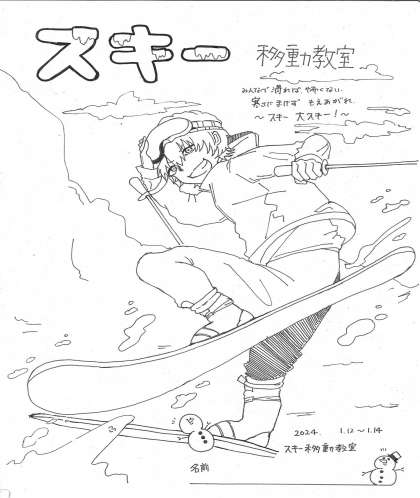 スキー 移動教室
みんなで滑れば、怖くない。
寒さにまけず もえあがれ
～スキー 大スキー！～
2024. 1.12～1.14
スキー移動教室
名前